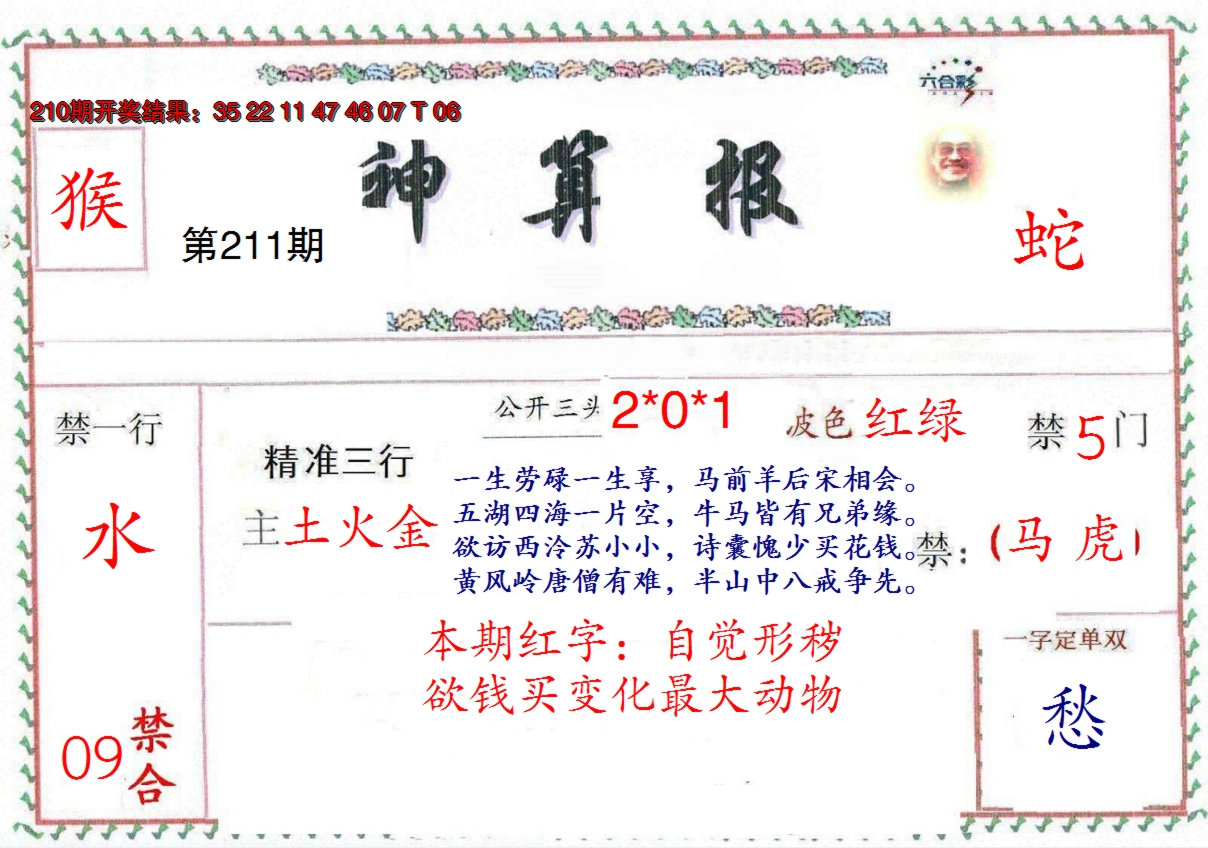 六合彩
210期开奖结果：35 22 11 47 46 07 T 06
神算报
猴
第211期
蛇
公开三头 2*0*1
波色 红绿
禁一行
禁5门
精准三行
主土火金
一生劳碌一生享，马前羊后宋相会。
五湖四海一片空，牛马皆有兄弟缘。
欲访西泠苏小小，诗囊愧少买花钱。
黄风岭唐僧有难，半山中八戒争先。
禁：（马 虎）
水
本期红字：自觉形秽
欲钱买变化最大动物
一字定单双
愁
09
禁合